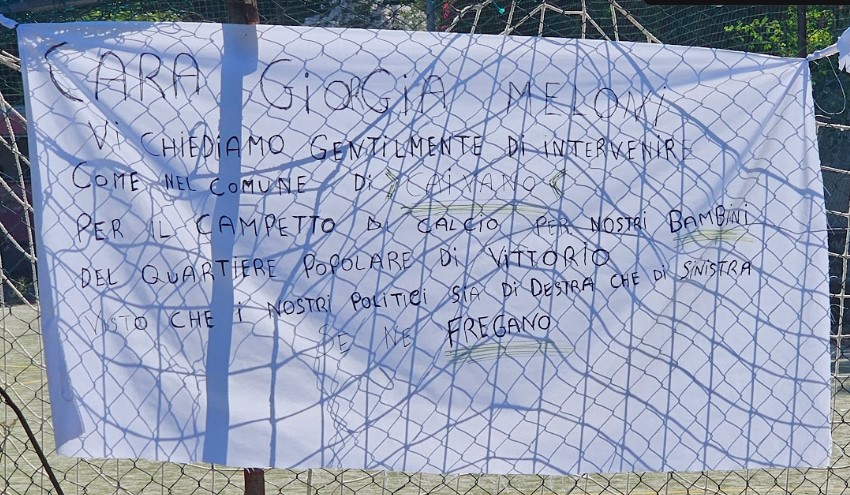 CARA GIORGIA MELONI
VI CHIEDIAMO GENTILMENTE DI INTERVENIRE
COME NEL COMUNE DI > CAIVANO <
PER IL CAMPETTO DI CALCIO PER NOSTRI BAMBINI
DEL QUARTIERE POPOLARE DI VITTORIO
VISTO CHE I NOSTRI POLITICI SIA DI DESTRA CHE DI SINISTRA
SE NE FREGANO